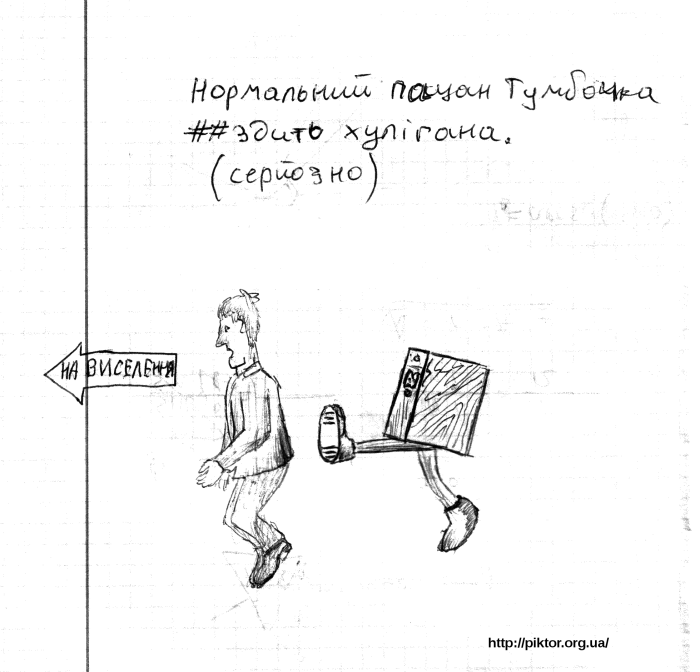 Нормальний пацан Тумбочка
##здить хулігана.
(серйозно)
НА ВИСЕЛЕННЯ
http://piktor.org.ua/